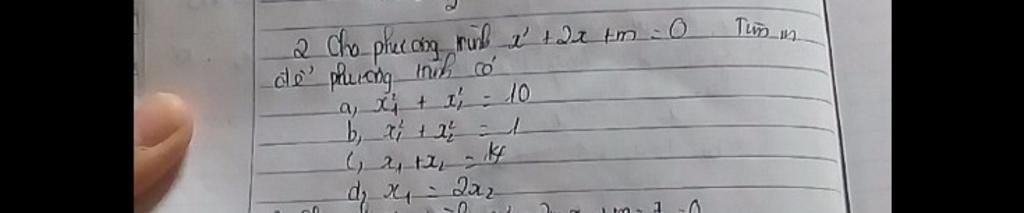 2 Cho phương trình x² + 2x + m = 0 Tìm m
để phương trình có
a, x₁² + x₂² = 10
b, x₁² + x₂² = 1
c, x₁ + x₂ = 14
d, x₁ = 2x₂